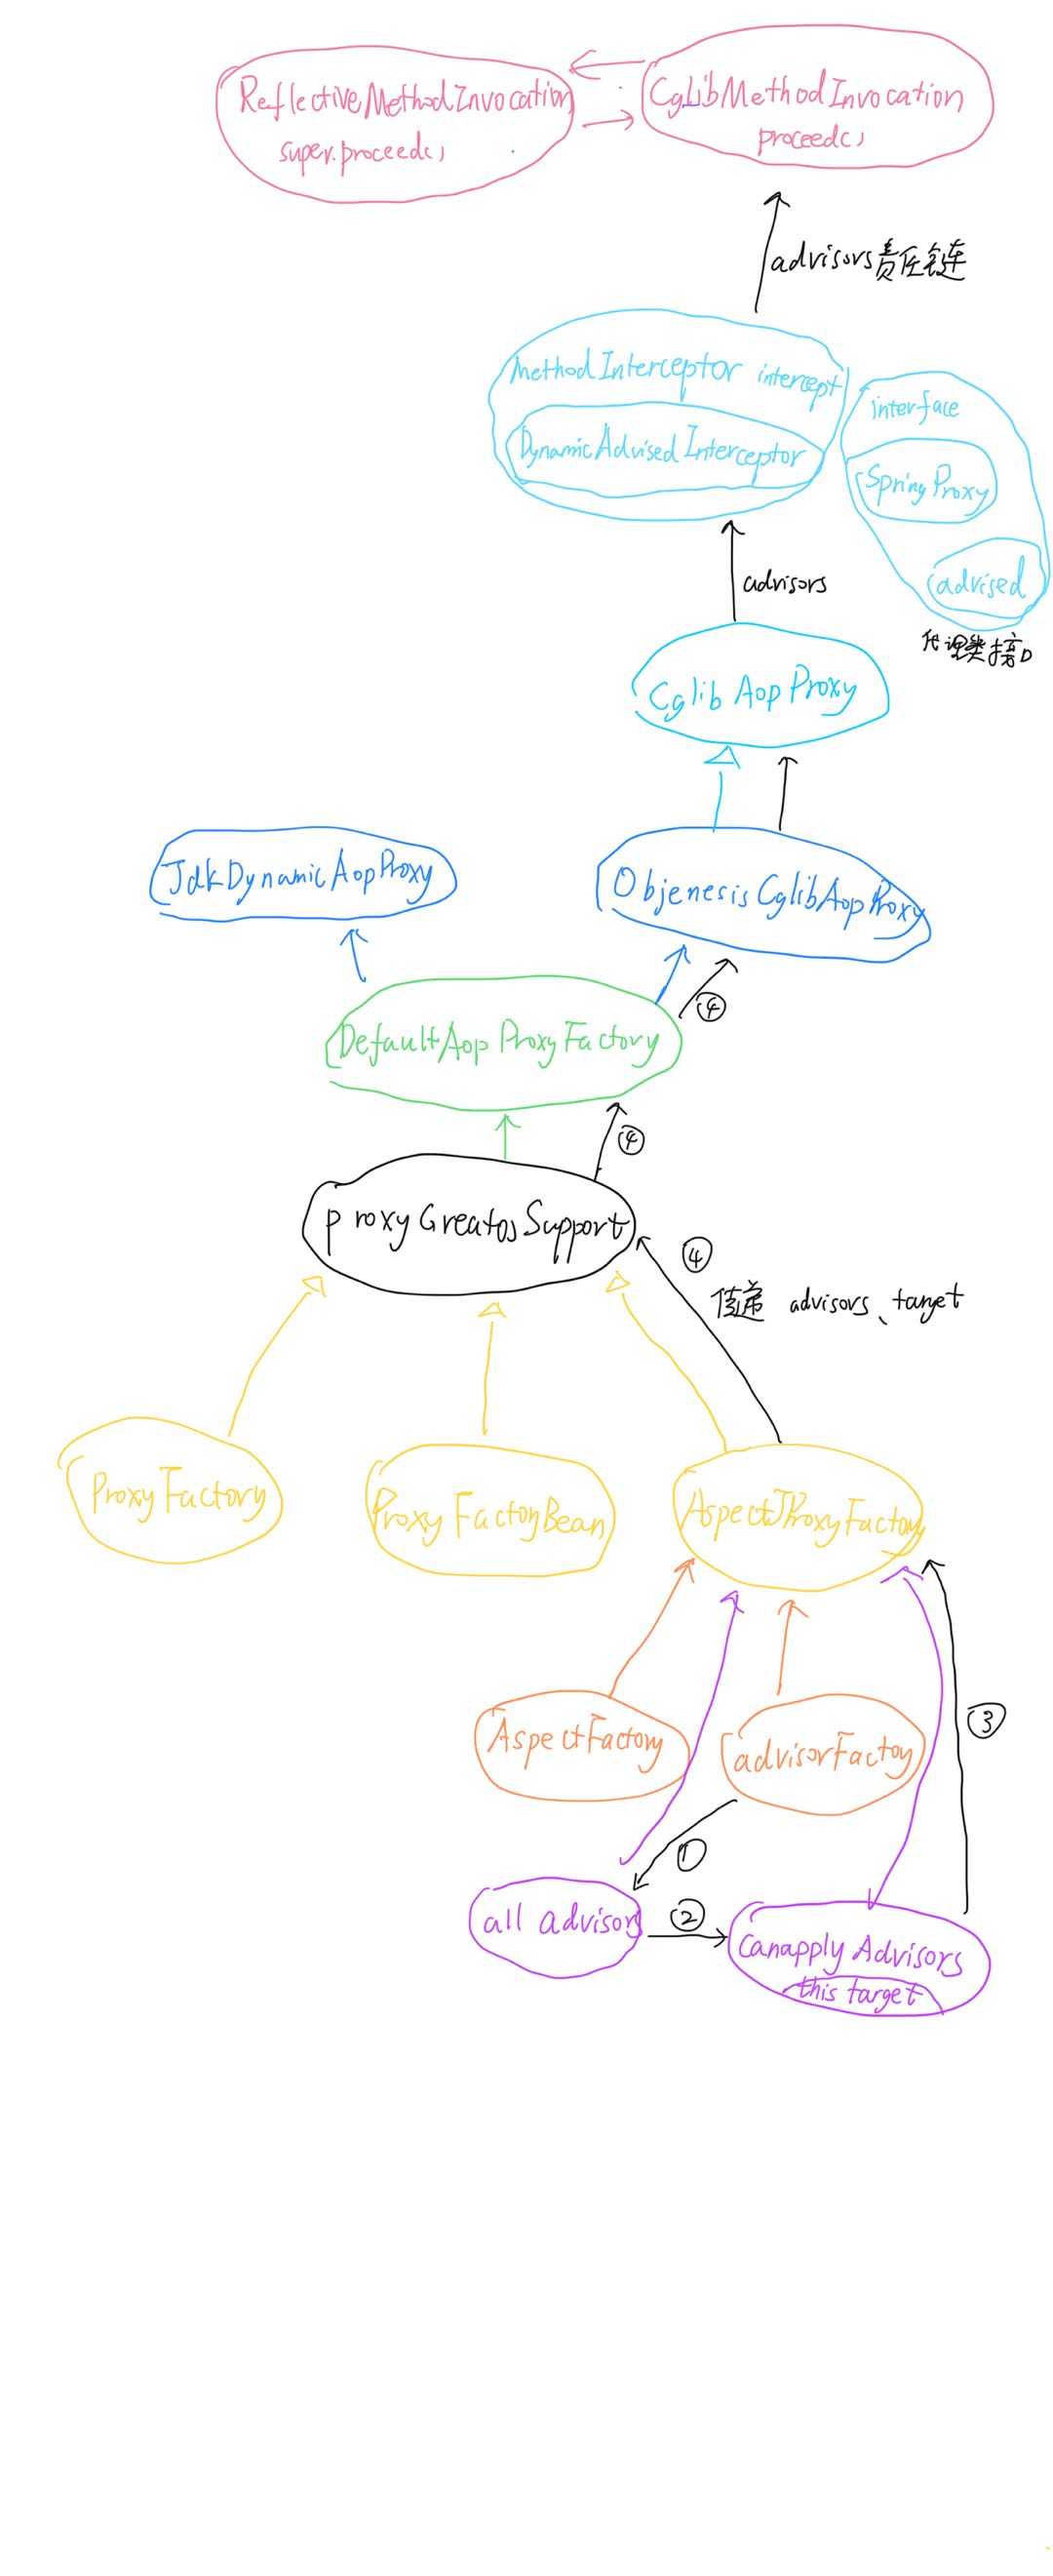 ReflectiveMethodInvocation
super.proceed()
CglibMethodInvocation
proceed()
advisors责任链
MethodInterceptor intercept
DynamicAdvisedInterceptor
interface
SpringProxy
advised
代理类接口
advisors
CglibAopProxy
JdkDynamicAopProxy
ObjenesisCglibAopProxy
④
DefaultAopProxyFactory
④
proxyCreatosSupport
④
传递 advisors、target
ProxyFactory
ProxyFactoryBean
AspectJProxyFactory
AspectFactory
advisorFactoy
③
①
all advisors
②
Canapply Advisors
this target